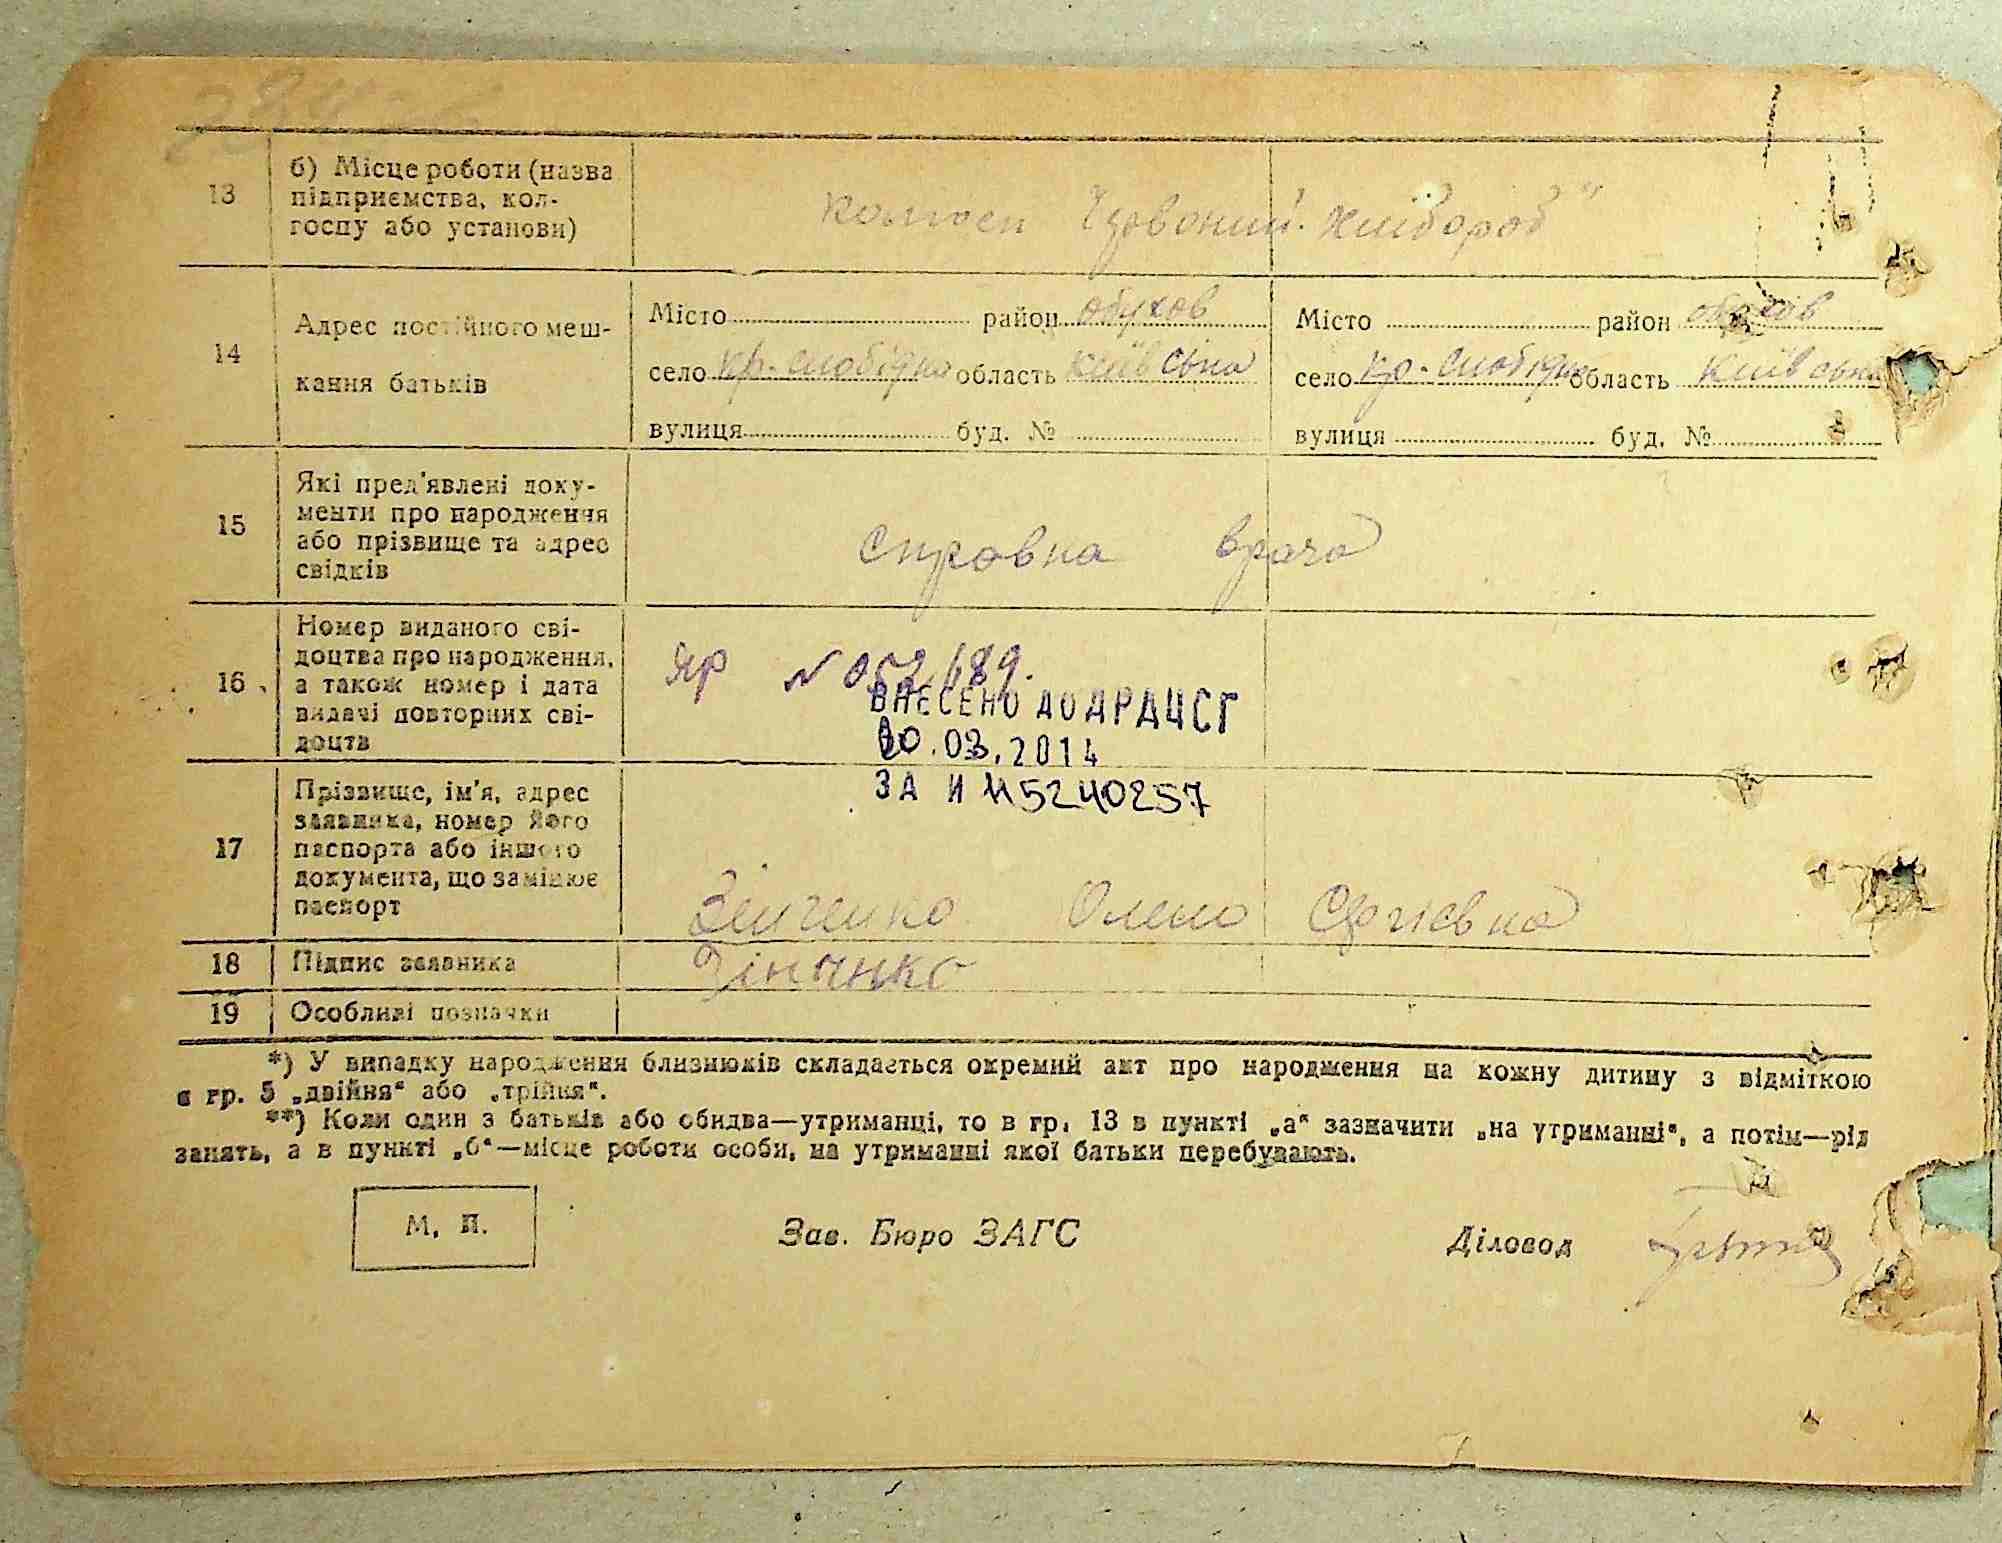 13 б) Місце роботи (назва
підприємства, кол-
госпу або установи)
колгосп "Червоний Хлібороб"
14 Адрес постійного меш-
кання батьків
Місто район обухов Місто район обухов
село кр. слобідка область київська село кр. слобідка область київська
вулиця буд. № вулиця буд. №
15 Які пред'явлені доку-
менти про народження
або прізвище та адрес
свідків
справка врача
16 Номер виданого сві-
доцтва про народження,
а також номер і дата
видачі повторних сві-
доцтв
ЯР № 052689.
ВНЕСЕНО ДО ДРАЦСГ
20.03.2014
ЗА И 115240257
17 Прізвище, ім'я, адрес
заявника, номер його
паспорта або іншого
документа, що замінює
паспорт
Зінченко Олена Сергієвна
18 Підпис заявника Зінченко
19 Особливі позначки
*) У випадку народження близнюків складається окремий акт про народження на кожну дитину з відміткою
в гр. 5 „двійня“ або „трійня“.
**) Коли один з батьків або обидва—утриманці, то в гр. 13 в пункті „а“ зазначити „на утриманні“, а потім—рід
занять, а в пункті „б“—місце роботи особи, на утриманні якої батьки перебувають.
М. П. Зав. Бюро ЗАГС Діловод